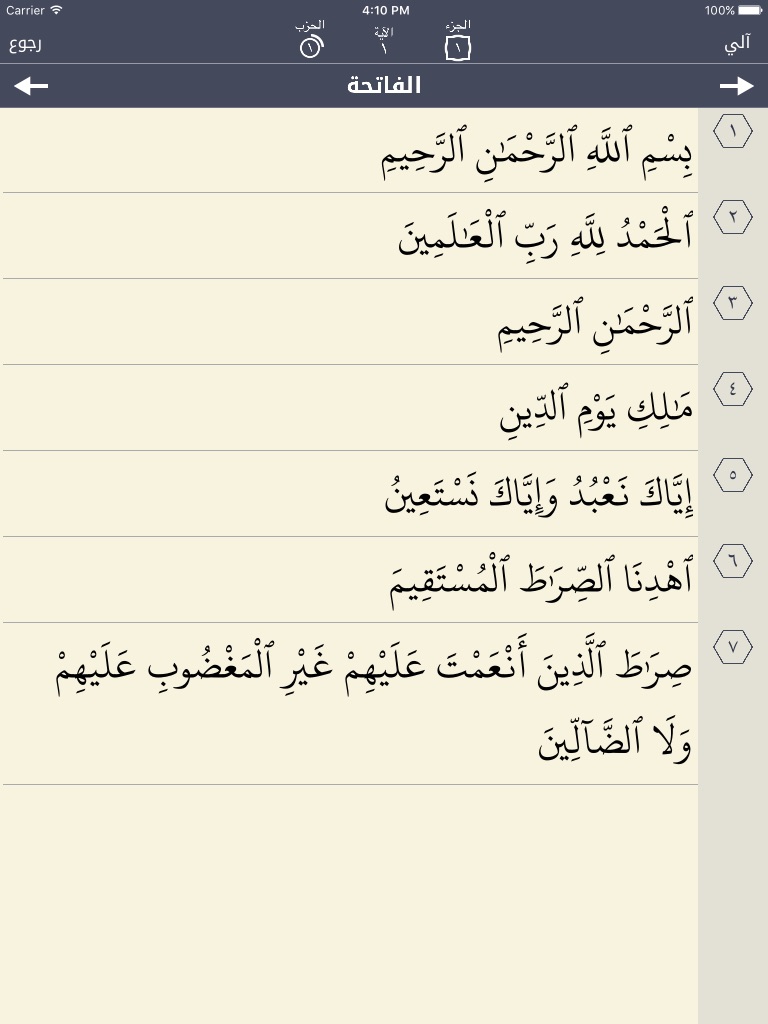 Carrier 4:10 PM 100%
رجوع الحزب ١ الآية ١ الجزء ١ آلي
الفاتحة
١ بِسْمِ ٱللَّهِ ٱلرَّحْمَـٰنِ ٱلرَّحِيمِ
٢ ٱلْحَمْدُ لِلَّهِ رَبِّ ٱلْعَـٰلَمِينَ
٣ ٱلرَّحْمَـٰنِ ٱلرَّحِيمِ
٤ مَـٰلِكِ يَوْمِ ٱلدِّينِ
٥ إِيَّاكَ نَعْبُدُ وَإِيَّاكَ نَسْتَعِينُ
٦ ٱهْدِنَا ٱلصِّرَٰطَ ٱلْمُسْتَقِيمَ
٧ صِرَٰطَ ٱلَّذِينَ أَنْعَمْتَ عَلَيْهِمْ غَيْرِ ٱلْمَغْضُوبِ عَلَيْهِمْ
وَلَا ٱلضَّآلِّينَ